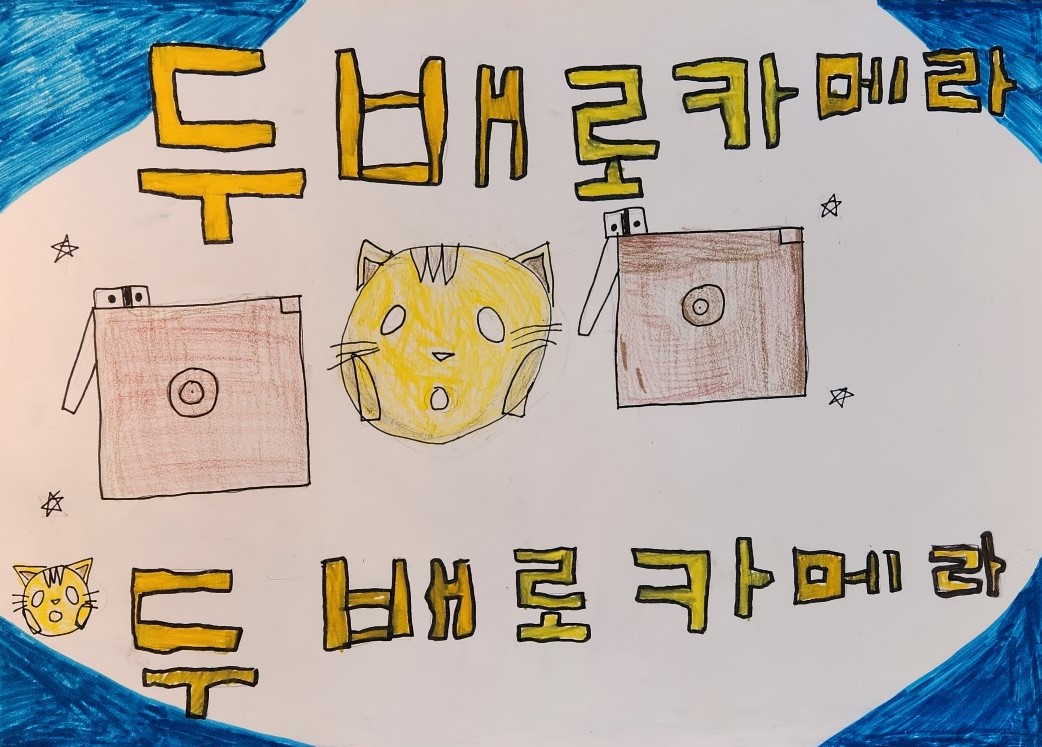 두배로카메라
두배로카메라